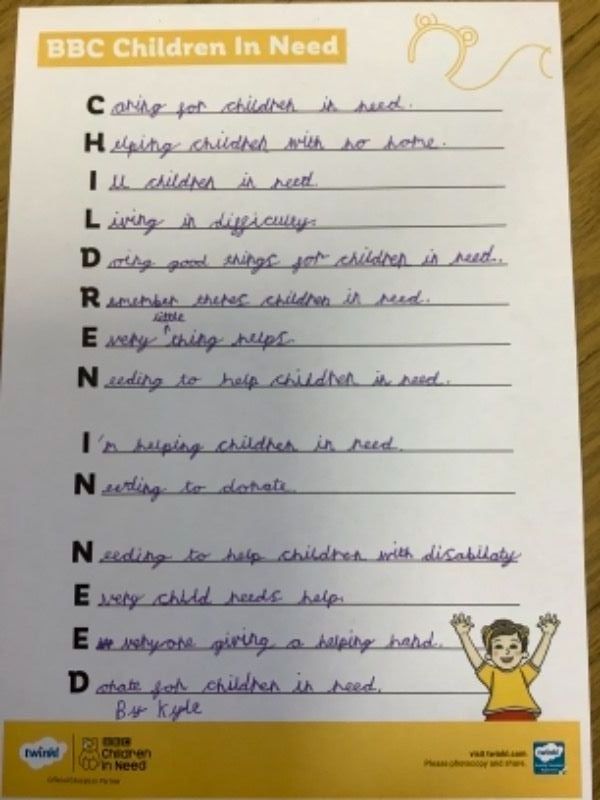 BBC Children In Need
Caring for children in need.
Helping children with no home.
Ill children in need.
Living in difficulty.
Doing good things for children in need.
Remember theres children in need.
little
Every ^ thing helps.
Needing to help children in need.
I'm helping children in need.
Needing to donate.
Needing to help children with disabilaty
Every child needs help.
Everyone giving a helping hand.
Donate for children in need.
By Kyle
twinkl
BBC
Children
in Need
Official Education Partner
visit twinkl.com
Please photocopy and share.
twinkl